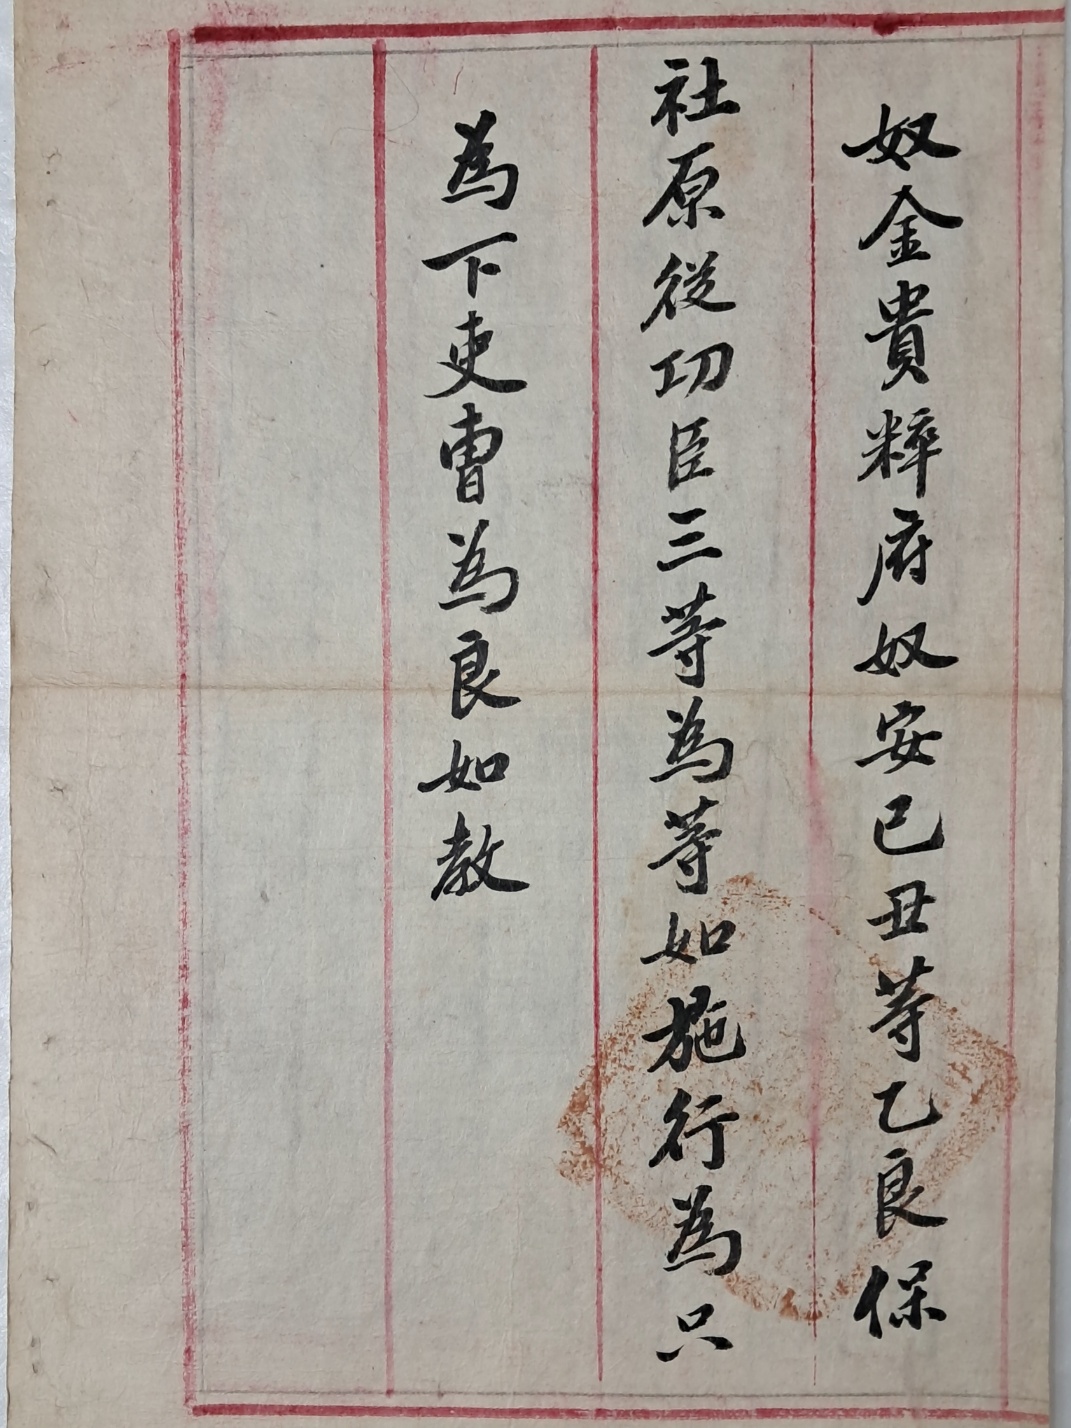 奴金貴粹府奴安已丑等乙良保
社原從功臣三等為等如施行為只
為下吏曹為良如教